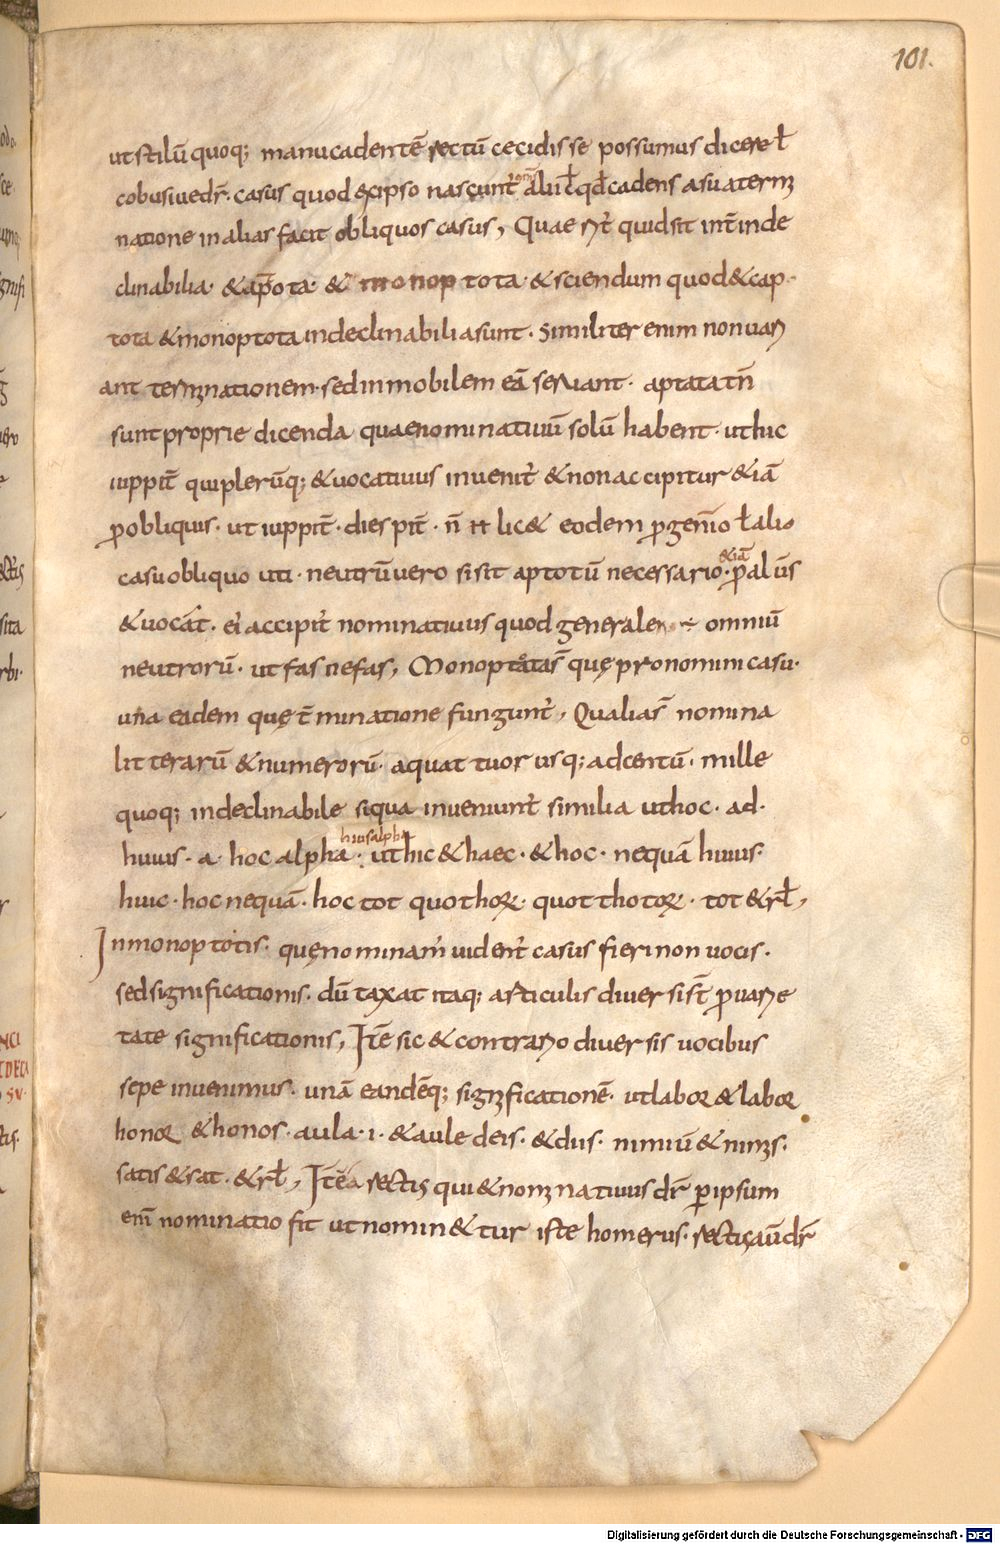 101.
ut stilũ quoq; manu cadentẽ rectũ cecidisse possumus dicere ł
cobusiuedr̃. casus quod & cipso nascunt̃ casus quod cadens a sua termi
natione in alias facit obliquos casus, Quae s̃t quid sit int̃ inde
clinabilia. & ap̃tota. & monoptota. & sciendum quod & cap
tota & monoptota indeclinabilia sunt. similiter enim non uari
ant terminationem. sed inmobilem eã seruant. aptata tñ
sunt proprie dicenda quae nominatiuũ solũ habent. ut hic
iuppit̃ qui plerũq; & uocatiuus inuenit̃ & non accipitur & iã
p obliquis. ut iuppit̃. diespit̃. ñ lic& eodem p̃ genitiuo ł alio
& iã
casu obliquo uti. neutrũ uero si sit aptotũ necessario. p̃ alũs
& uocat̃. ei accipit̃ nominatiuus quod generale ÷ omniũ
neutrorũ. ut fas nefas, Monoptata s̃ quę pro nomini casu.
una eadem quę t̃minatione fungunt̃, Qualia s̃ nomina
litterarũ & numerorũ. a quattuor usq; ad centũ. mille
quoq; indeclinabile siqua inueniunt̃ similia ut hoc. ad.
huiusalpha
huius. a. hoc alpha. ut hic & haec. & hoc. nequã huius.
huic. hoc nequã. hoc tot quot hor. quot thotor. tot & rł,
Inmonoptotis. quę nominam̃ uident̃ casus fieri non uocis.
sed significationis. dũ taxat itaq; articulis diuersis f̃t p uarie
tate significationis, Itẽ sic & contrario diuersis uocibus
sepe inuenimus. unã eandẽq; significationẽ. ut labor & labor
honor & honos. aula. i. & aule deis. & dus. nimiũ & nimis.
satis & sat. & rł, Itẽ a rectis qui & nominatiuus dr̃ p ipsum
eni᷃ nominatio fit ut nomin&ur iste homerus. rectis aũ dr̃
Digitalisierung gefördert durch die Deutsche Forschungsgemeinschaft - DFG